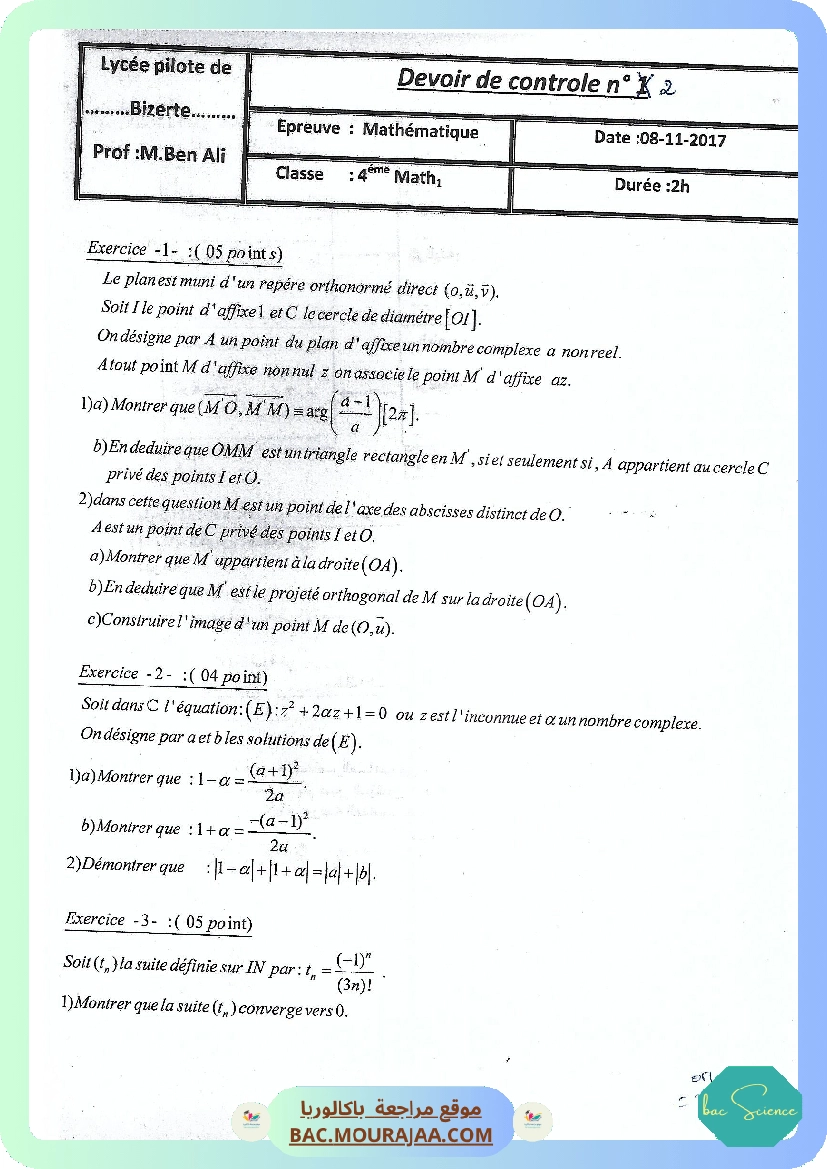 Lycée pilote de
.........Bizerte.........
Prof :M.Ben Ali
Devoir de controle n° 2
Epreuve : Mathématique
Date :08-11-2017
Classe : 4éme Math1
Durée :2h
Exercice -1- :( 05 points)
Le plan est muni d'un repére orthonormé direct (o,u⃗,v⃗).
Soit I le point d'affixe1 et C le cercle de diamétre [OI].
On désigne par A un point du plan d'affixe un nombre complexe a non reel.
A tout point M d'affixe non nul z on associe le point M' d'affixe az.
1)a) Montrer que (M'O, M'M) ≡ arg((a-1)/a)[2π].
b)En deduire que OMM' est un triangle rectangle en M', si et seulement si, A appartient au cercle C
privé des points I et O.
2)dans cette question M est un point de l'axe des abscisses distinct de O.
A est un point de C privé des points I et O.
a)Montrer que M' appartient à la droite (OA).
b)En deduire que M' est le projeté orthogonal de M sur la droite (OA).
c)Construire l'image d'un point M de (O,u⃗).
Exercice -2- :( 04 point)
Soit dans ℂ l'équation:(E):z² + 2αz + 1 = 0 ou z est l'inconnue et α un nombre complexe.
On désigne par a et b les solutions de (E).
1)a)Montrer que : 1-α = (a+1)²/2a.
b)Montrer que : 1+α = -(a-1)²/2a.
2)Démontrer que : |1-α|+|1+α|=|a|+|b|.
Exercice -3- :( 05 point)
Soit (tn) la suite définie sur IN par : tn = (-1)^n/(3n)! .
1)Montrer que la suite (tn) converge vers 0.
bac Science
موقع مراجعة باكالوريا
BAC.MOURAJAA.COM